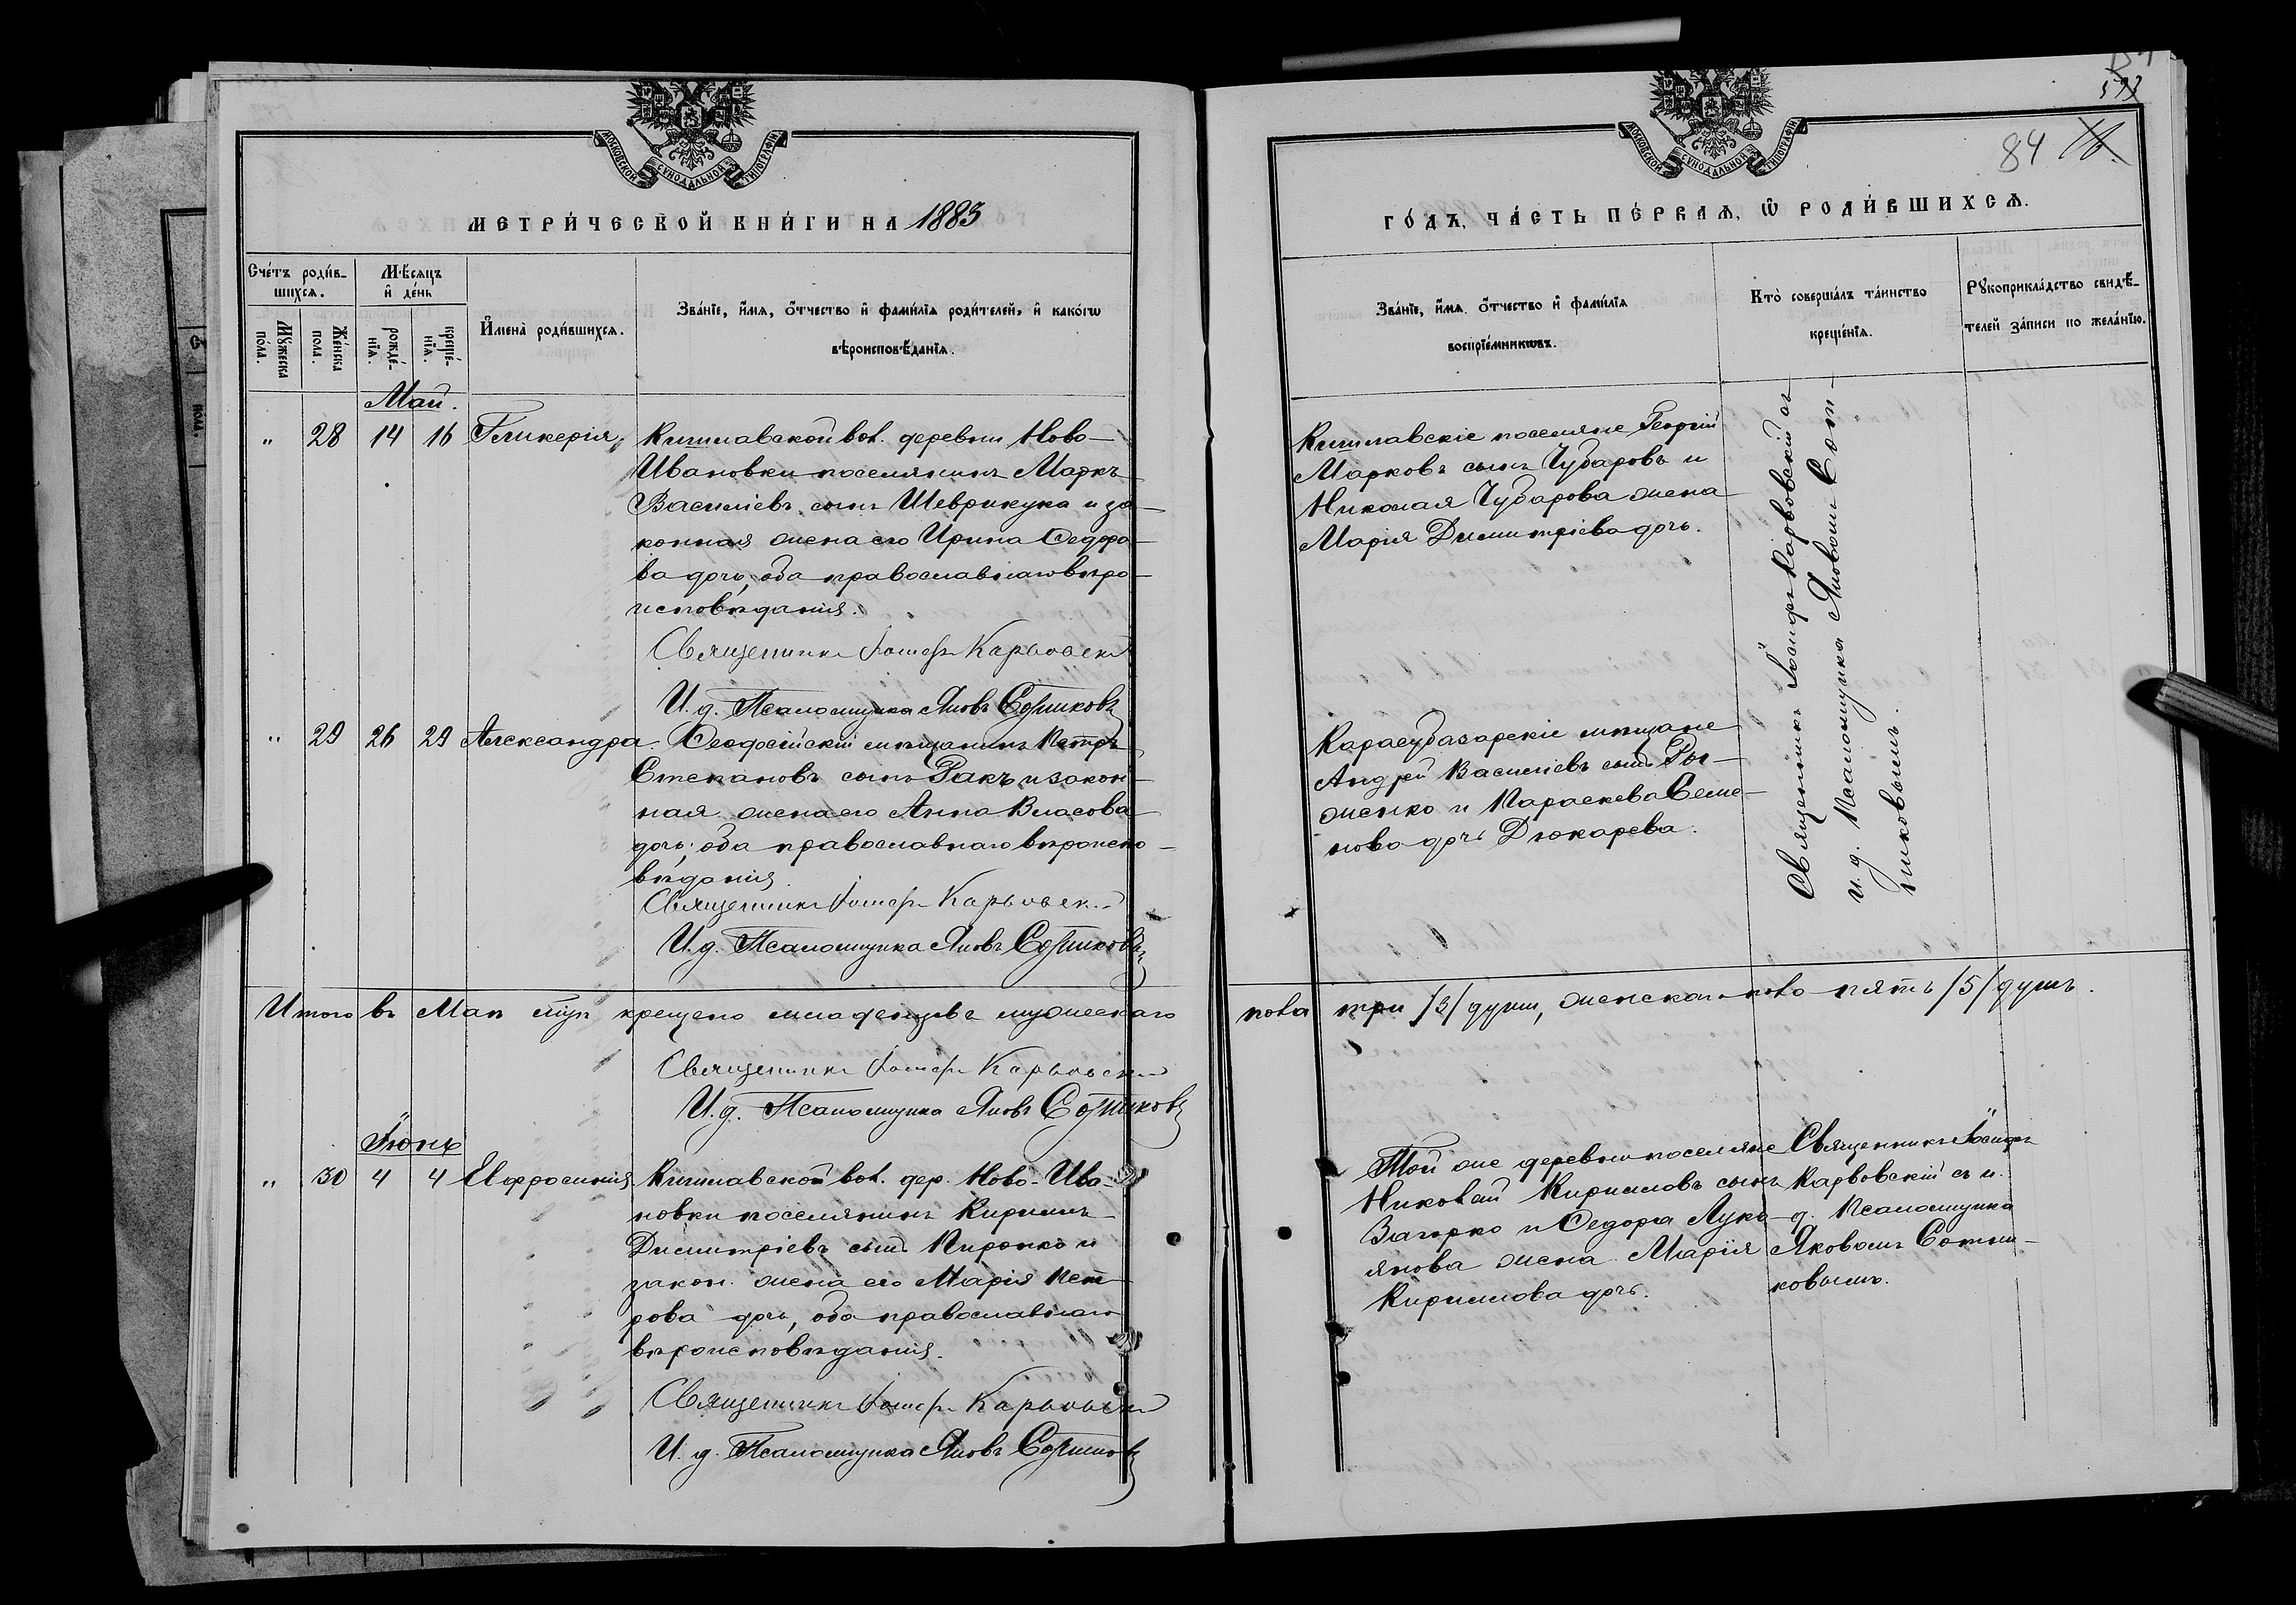 МОСКОВСКОЙ СѴНОДАЛЬНОЙ ТИПОГРАФІИ
МЕТРИ́ЧЕСКОЙ КНИ́ГИ НА 1883
Сче́тъ роди́в-
шихся.
Мѣ́сяцъ
и҆ де́нь
Мꙋ́жеска
по́ла.
Же́нска
пола.
рожде́-
нїѧ.
креще́-
нїѧ.
И҆мена̀ роди́вшихся.
Зва́нїе, и҆́мѧ, ѻ҆́тчество и҆ фами́лїѧ роди́телей, и҆ како́гѡ
вѣроисповѣ́данїѧ.
Май.
" 28 14 16 Гликерія.
Кишлавской вол. деревни Ново-
Ивановки поселянинъ Маркъ
Василіевъ сынъ Шеврикука и за-
конная жена его Ирина Ѳедоро-
ва дочь, оба православнаго вѣро-
исповѣданія.
Священникъ Іосифъ Карвовскій
И. д. Псаломщика Яковъ Сотниковъ
" 29 26 29 Александра.
Ѳеодосійскій мѣщанинъ Петръ
Степановъ сынъ Ракъ и закон-
ная жена его Анна Власова
дочь, оба православнаго вѣроиспо-
вѣданія.
Священникъ Іосифъ Карвовскій
И. д. Псаломщика Яковъ Сотниковъ
Итого въ Маѣ мцѣ крещено младенцевъ мужескаго
Священникъ Іосифъ Карвовскій
И. д. Псаломщика Яковъ Сотниковъ
Іюнь
" 30 4 4 Евфросинія
Кишлавской вол. дер. Ново-Ива-
новки поселянинъ Кириллъ
Димитріевъ сынъ Пиронко и
закон. жена его Марія Пет-
рова дочь, оба православнаго
вѣроисповѣданія.
Священникъ Іосифъ Карвовскій
И. д. Псаломщика Яковъ Сотниковъ
МОСКОВСКОЙ СѴНОДАЛЬНОЙ ТИПОГРАФІИ
84
ГО́ДЪ, ЧА́СТЬ ПЕ́РВАѦ, Ѡ҆ РОДИ́ВШИХСѦ.
Зва́нїе, и҆́мѧ, ѻ҆́тчество и҆ фами́лїѧ
воспрїе́мникѡвъ.
Кто̀ соверша́лъ та́инство
креще́нїѧ.
Рꙋкоприкла́дство свидѣ́-
телей за́писи по жела́нїю.
Кишлавскіе поселяне Георгій
Марковъ сынъ Чубаровъ и
Николая Чубарова жена
Марія Димитріева дочь.
Священникъ Іосифъ Карвовскій съ
и. д. Псаломщика Яковомъ Сот-
никовымъ.
Карасубазарскіе мѣщане
Андрей Василіевъ сынъ Ры-
женко и Параскева Семе-
нова дочь Дюкарева.
пола три /3/ души, женскаго пола пять /5/ душъ.
Той же деревни поселяне
Николай Кирилловъ сынъ
Загорко и Ѳедора Лукъ-
янова жена Марія
Кириллова дочь.
Священникъ Іосифъ
Карвовскій съ и.
д. Псаломщика
Яковомъ Сотни-
ковымъ.